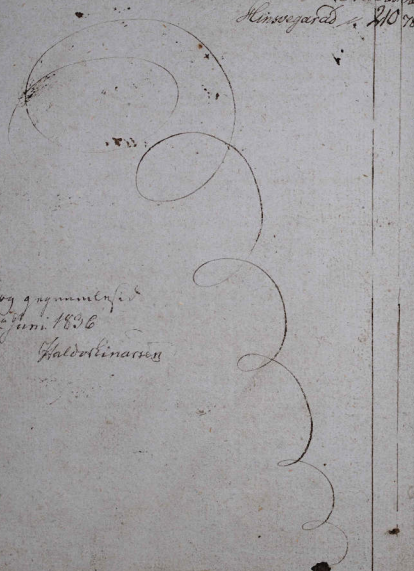 Hinsvegarad 210 78
og gegnumlesið
Juni 1836
HaldorEinarsen